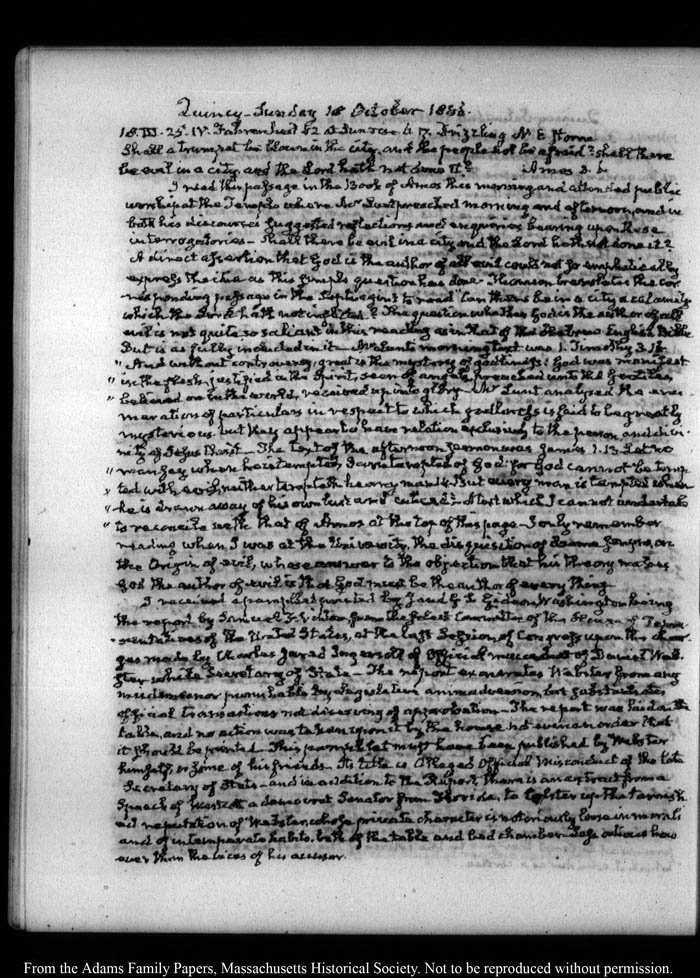 Quincy - Sunday 18 October 1846.
18. III. 25. IV. Fahrenheit 52 at Sunrise 6. 17. Drizzling N. E Storm
Shall a trumpet be blown in the city, and the people not be afraid? shall there
be evil in a city, and the Lord hath not done it? Amos 3. 6
I read this passage in the Book of Amos this morning and attended public
worship at the Temple where Mr Lunt preached morning and afternoon, and in
both his discourses suggested reflections and enquiries bearing upon these
interrogatories - Shall there be evil in a city and the Lord hath not done it?
A direct assertion that God is the author of all evil could not so emphatically
express the idea as this simple question has done - Thomson translates the cor
responding passage in the Septuagint to read Can there be in a city a calamity
which the Lord hath not inflicted? The question whether God is the author of all
evil is not quite so salient in this reading as in that of the Hebrew English Bible
But is as fully included in it - Mr Lunt's morning text was 1. Timothy 3. 16
" And without controversy great is the mystery of godliness: God was manifest
" in the flesh, justified in the Spirit, seen of angels, preached unto the Gentiles,
" believed on in the world, received up into glory - Mr Lunt analysed the enu
meration of particulars in respect to which godliness is said to be greatly
mysterious. but they appear to have relation exclusively to the person and divi
nity of Jesus Christ - The text of the afternoon sermon was James 1. 13. Let no
" man say when he is tempted, I am tempted of God: for God cannot be temp
" ted with evil, neither tempteth he any man 14. But every man is tempted when
" he is drawn away of his own lust and enticed - A text which I cannot undertake
" to reconcile with that of Amos at the top of this page - I only remember
reading when I was at the University, the disquisition of Soame Jenyns, on
the Origin of evil, whose answer to the objection that his theory makes
God the author of evil is that God must be the author of every thing
I received a pamphlet printed by J and G. S. Gideon Washington being
the report by Samuel F. Vinton from the Select Committee of the House of Repre
sentatives of the United States, at the last Session of Congress upon the char
ges made by Charles Jared Ingersoll of Official misconduct of Daniel Web
ster while Secretary of State - The report exonerates Webster from any
misdemeanor punishable by Legislative animadversion, but substantiates
official transactions not deserving of approbation - The report was laid on the
table, and no action was taken upon it by the house not even an order that
it should be printed - This pamphlet must have been published by Webster
himself, or some of his friends - Its title is Alleged Official Misconduct of the late
Secretary of State - and in addition to the Report, there is an extract from a
Speech of Westcott a democrat Senator from Florida, to bolster up the tarnish
ed reputation of Webster, whose private character is notoriously loose in morals
and of intemperate habits, both of the table and bed chamber - less odious how
ever than the vices of his accuser.
From the Adams Family Papers, Massachusetts Historical Society. Not to be reproduced without permission.